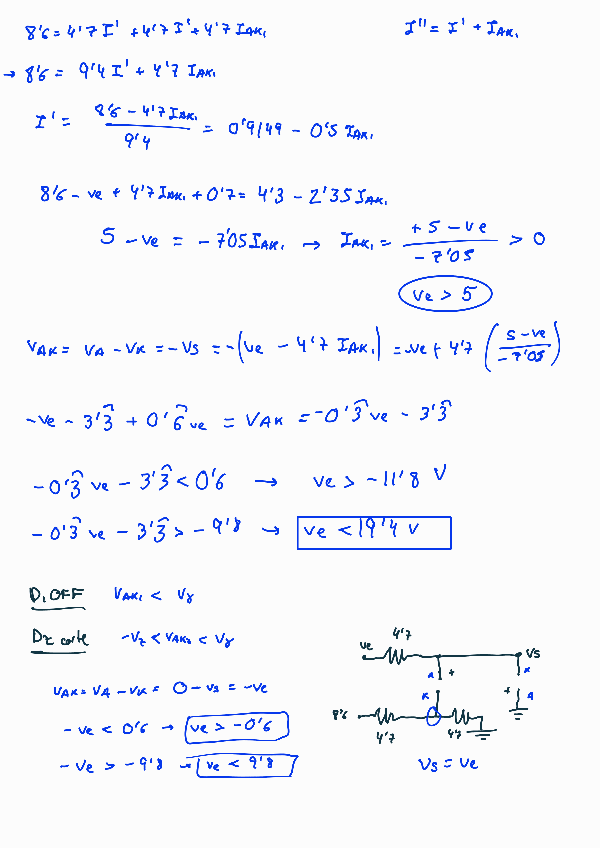 8'6 = 4'7 I' + 4'7 I' + 4'7 IAK₁ I'' = I' + IAK₁
→ 8'6 = 9'4 I' + 4'7 IAK₁
I' = (8'6 - 4'7 IAK₁) / 9'4 = 0'9149 - 0'5 IAK₁
8'6 - ve + 4'7 IAK₁ + 0'7 = 4'3 - 2'35 IAK₁
5 - ve = -7'05 IAK₁ → IAK₁ = (+5 - ve) / (-7'05) > 0
ve > 5
VAK = VA - VK = -VS = -(ve - 4'7 IAK₁) = -ve + 4'7 ((5 - ve) / (-7'05))
-ve - 3'3̂ + 0'6̂ ve = VAK = -0'3̂ ve - 3'3̂
-0'3̂ ve - 3'3̂ < 0'6 → ve > -11'8 V
-0'3̂ ve - 3'3̂ > -9'8 → ve < 19'4 V
D₁ OFF VAK₁ < Vγ
Dz corte -Vz < VAK₂ < Vγ
VAK = VA - VK = 0 - VS = -ve
-ve < 0'6 → ve > -0'6
-ve > -9'8 → ve < 9'8
ve 4'7 VS
A + K
K + A
8'6 4'7 4'7
VS = ve